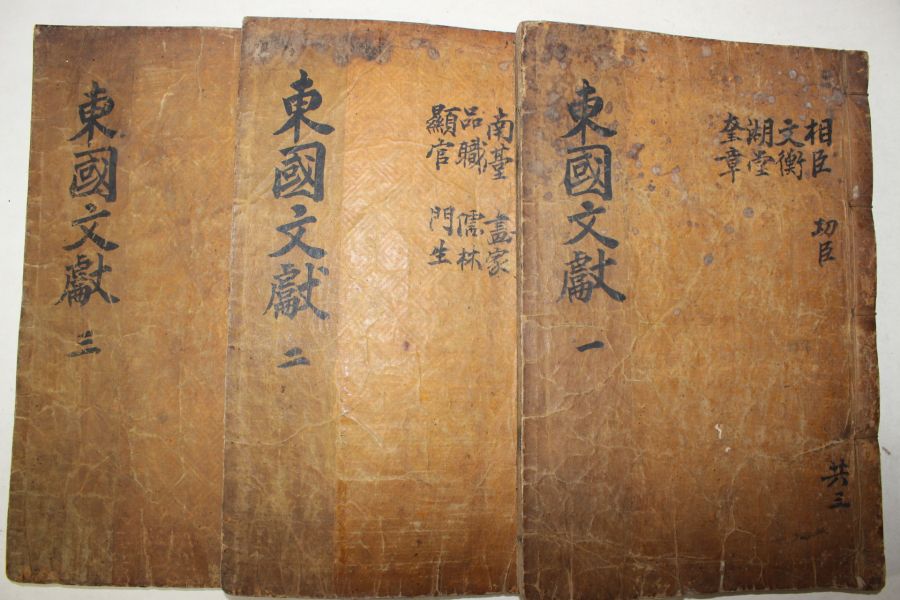 相臣 功臣
文衡
湖堂
奎章
東國文獻 一
共三
南臺 畵家
品職 儒林
顯官 門生
東國文獻 二
東國文獻 三